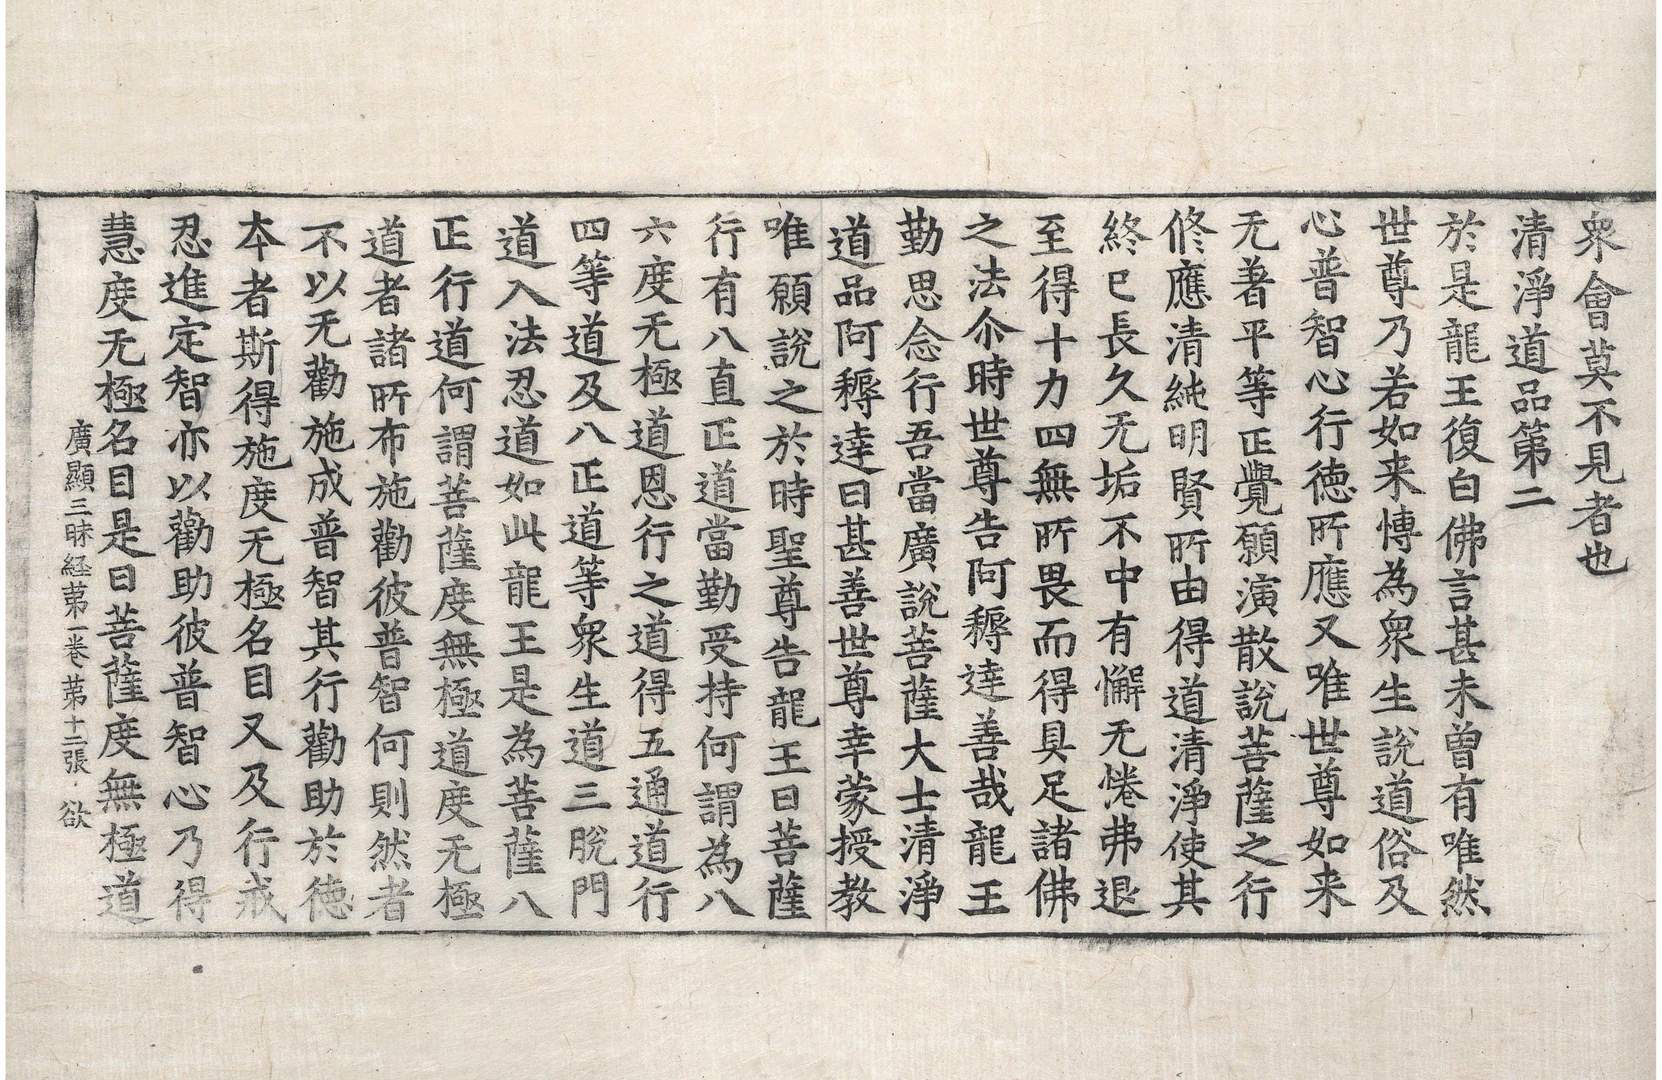 衆會莫不見者也
清淨道品第二
於是龍王復白佛言甚未曾有唯然
世尊乃若如来愽為衆生說道俗及
心普智心行徳所應又唯世尊如来
无著平等正覺願演散說菩薩之行
修應清純明賢所由得道清淨使其
終已長久无垢不中有懈无惓弗退
至得十力四無所畏而得具足諸佛
之法尒時世尊告阿耨達善哉龍王
勤思念行吾當廣說菩薩大士清淨
道品阿耨達曰甚善世尊幸蒙授教
唯願說之於時聖尊告龍王曰菩薩
行有八直正道當勤受持何謂為八
六度无極道恩行之道得五通道行
四等道及八正道等衆生道三脫門
道入法忍道如此龍王是為菩薩八
正行道何謂菩薩度無極道度无極
道者諸所布施勸彼普智何則然者
不以无勸施成普智其行勸助於徳
本者斯得施度无極名目又及行戒
忍進定智亦以勸助彼普智心乃得
慧度无極名目是曰菩薩度無極道
廣顯三昧経苐一卷 苐十二張 欲